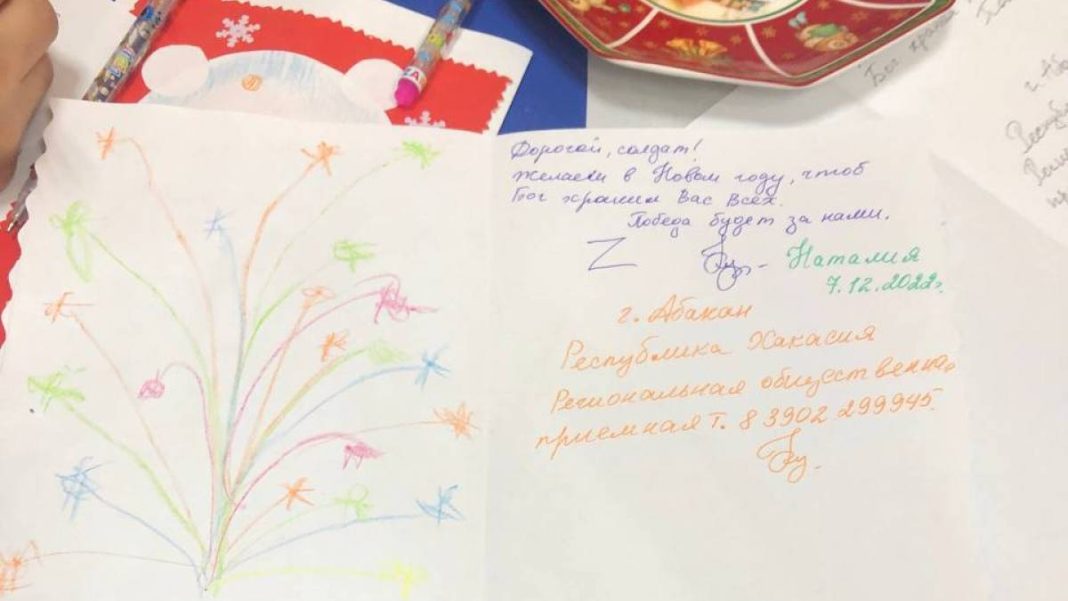 Дорогой, солдат!
Желаем в Новом году, чтоб
Бог хранит Вас Всех.
Победа будет за нами.
Z
Наталия
7.12.2022г.
г. Абакан
Республика Хакасия
Региональная общественная
приемная т. 8 3902 299945.
Бог
г. Аба
Республ